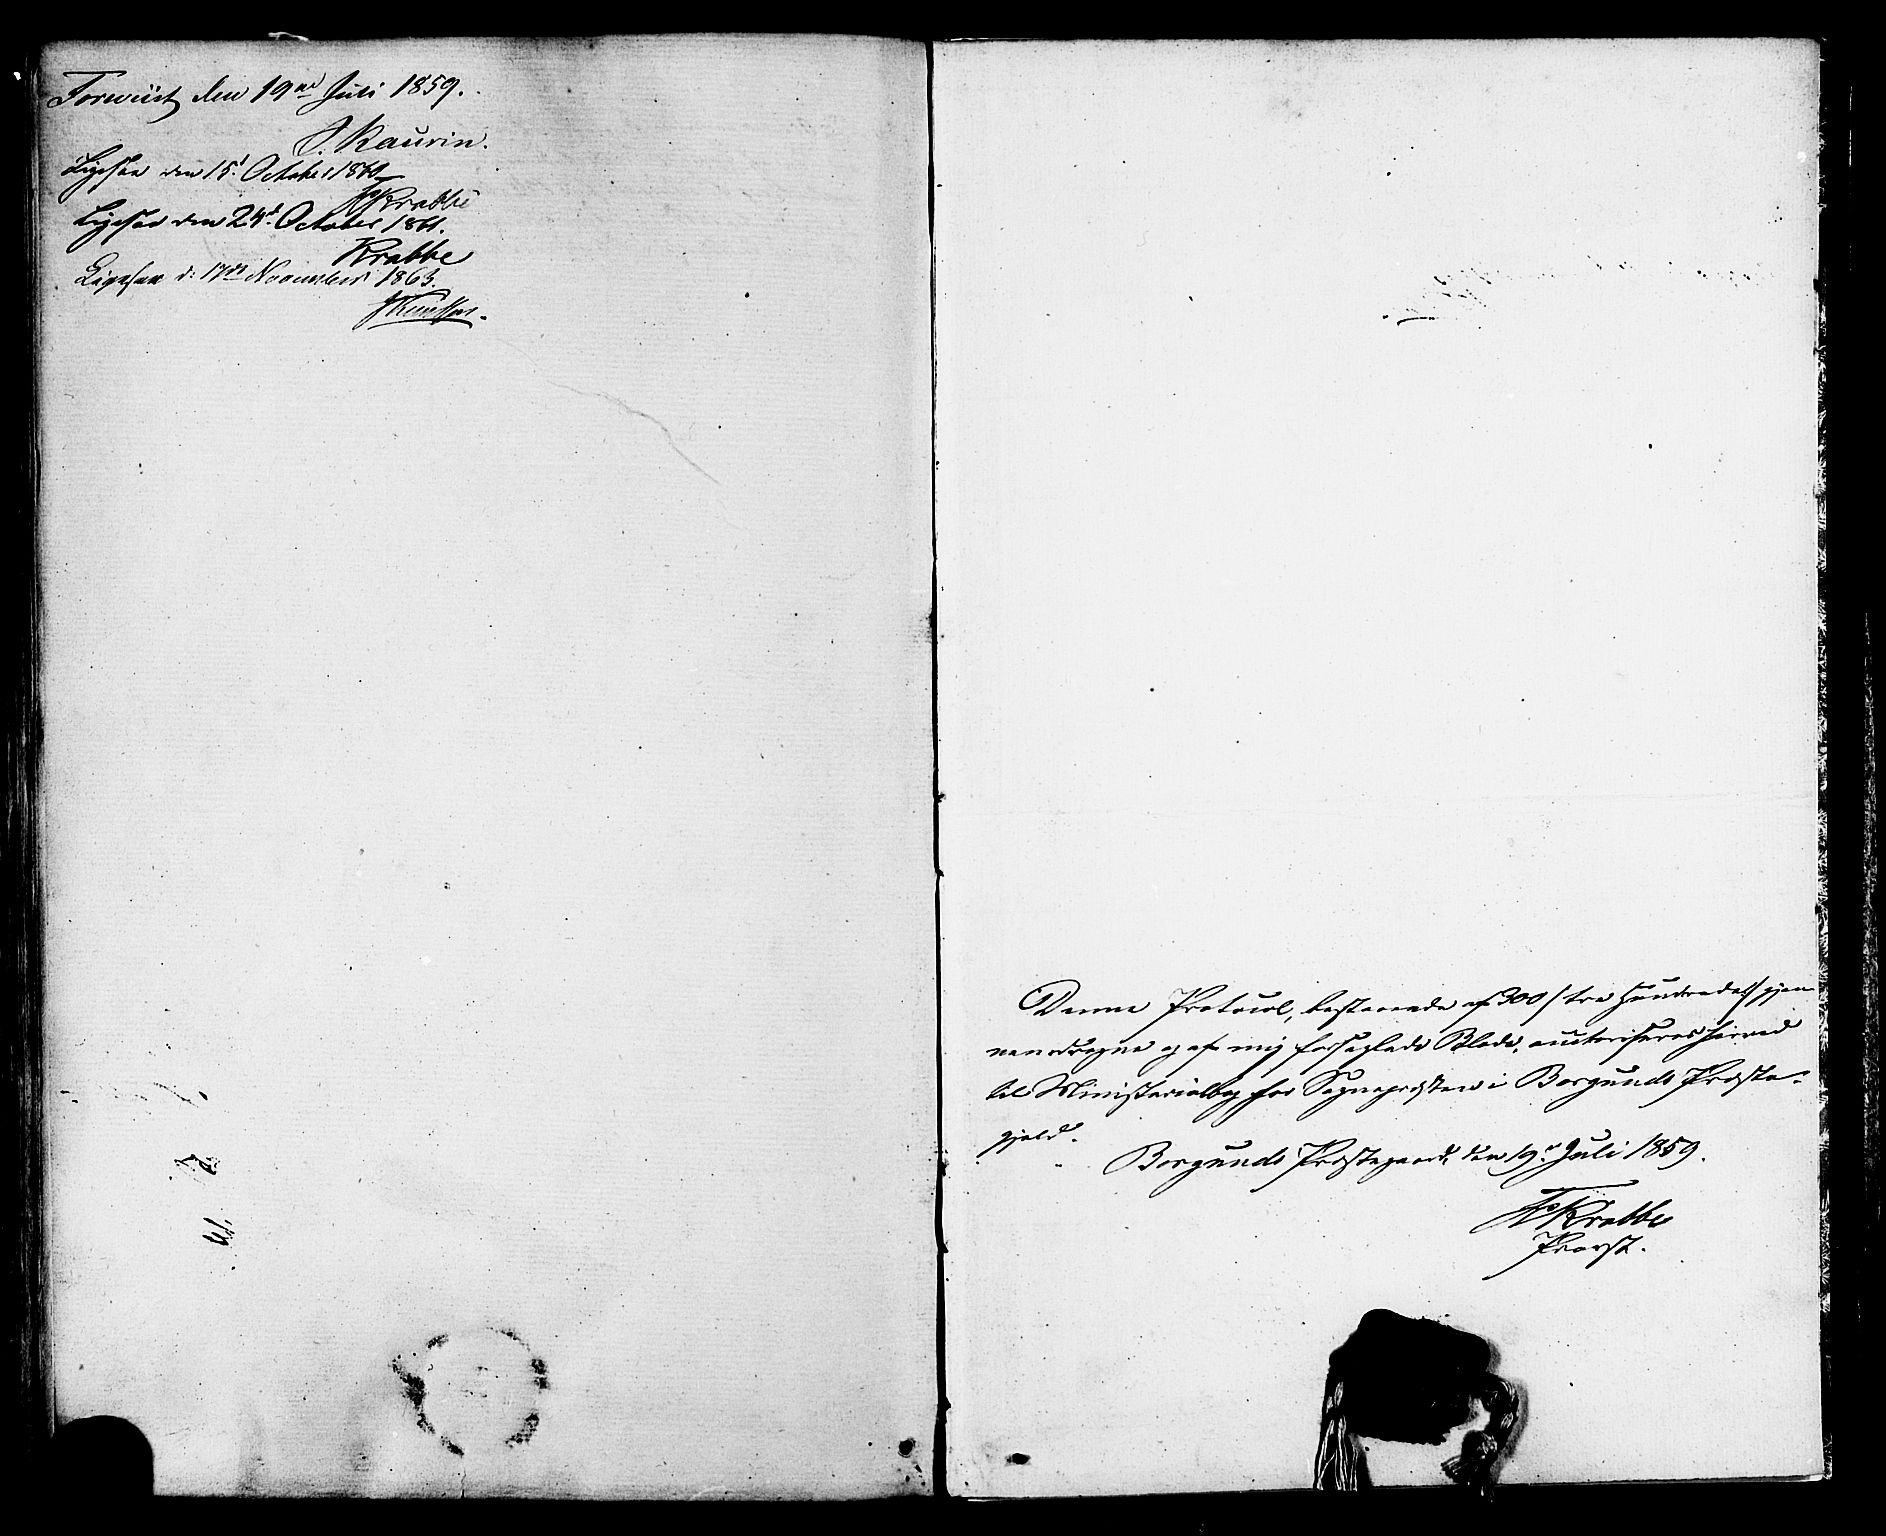 Foreviist den 19de Juli 1859.
J. Kaurin.
Ligesaa den 15d October 1860
FKrabbe
Ligesaa den 24d October 1861.
Krabbe
Ligesaa d: 17de November 1863.
Denne Protocol, bestaaende af 300 /tre Hundrede/ gjen
nemdragne og af mig forseglede Blade, autoriseres herved
til Ministerialbog for Sognepræsten i Borgunds Præste-
gjeld.
Borgunds Præstegaard, den 19d Juli 1859.
FKrabbe
Provst.